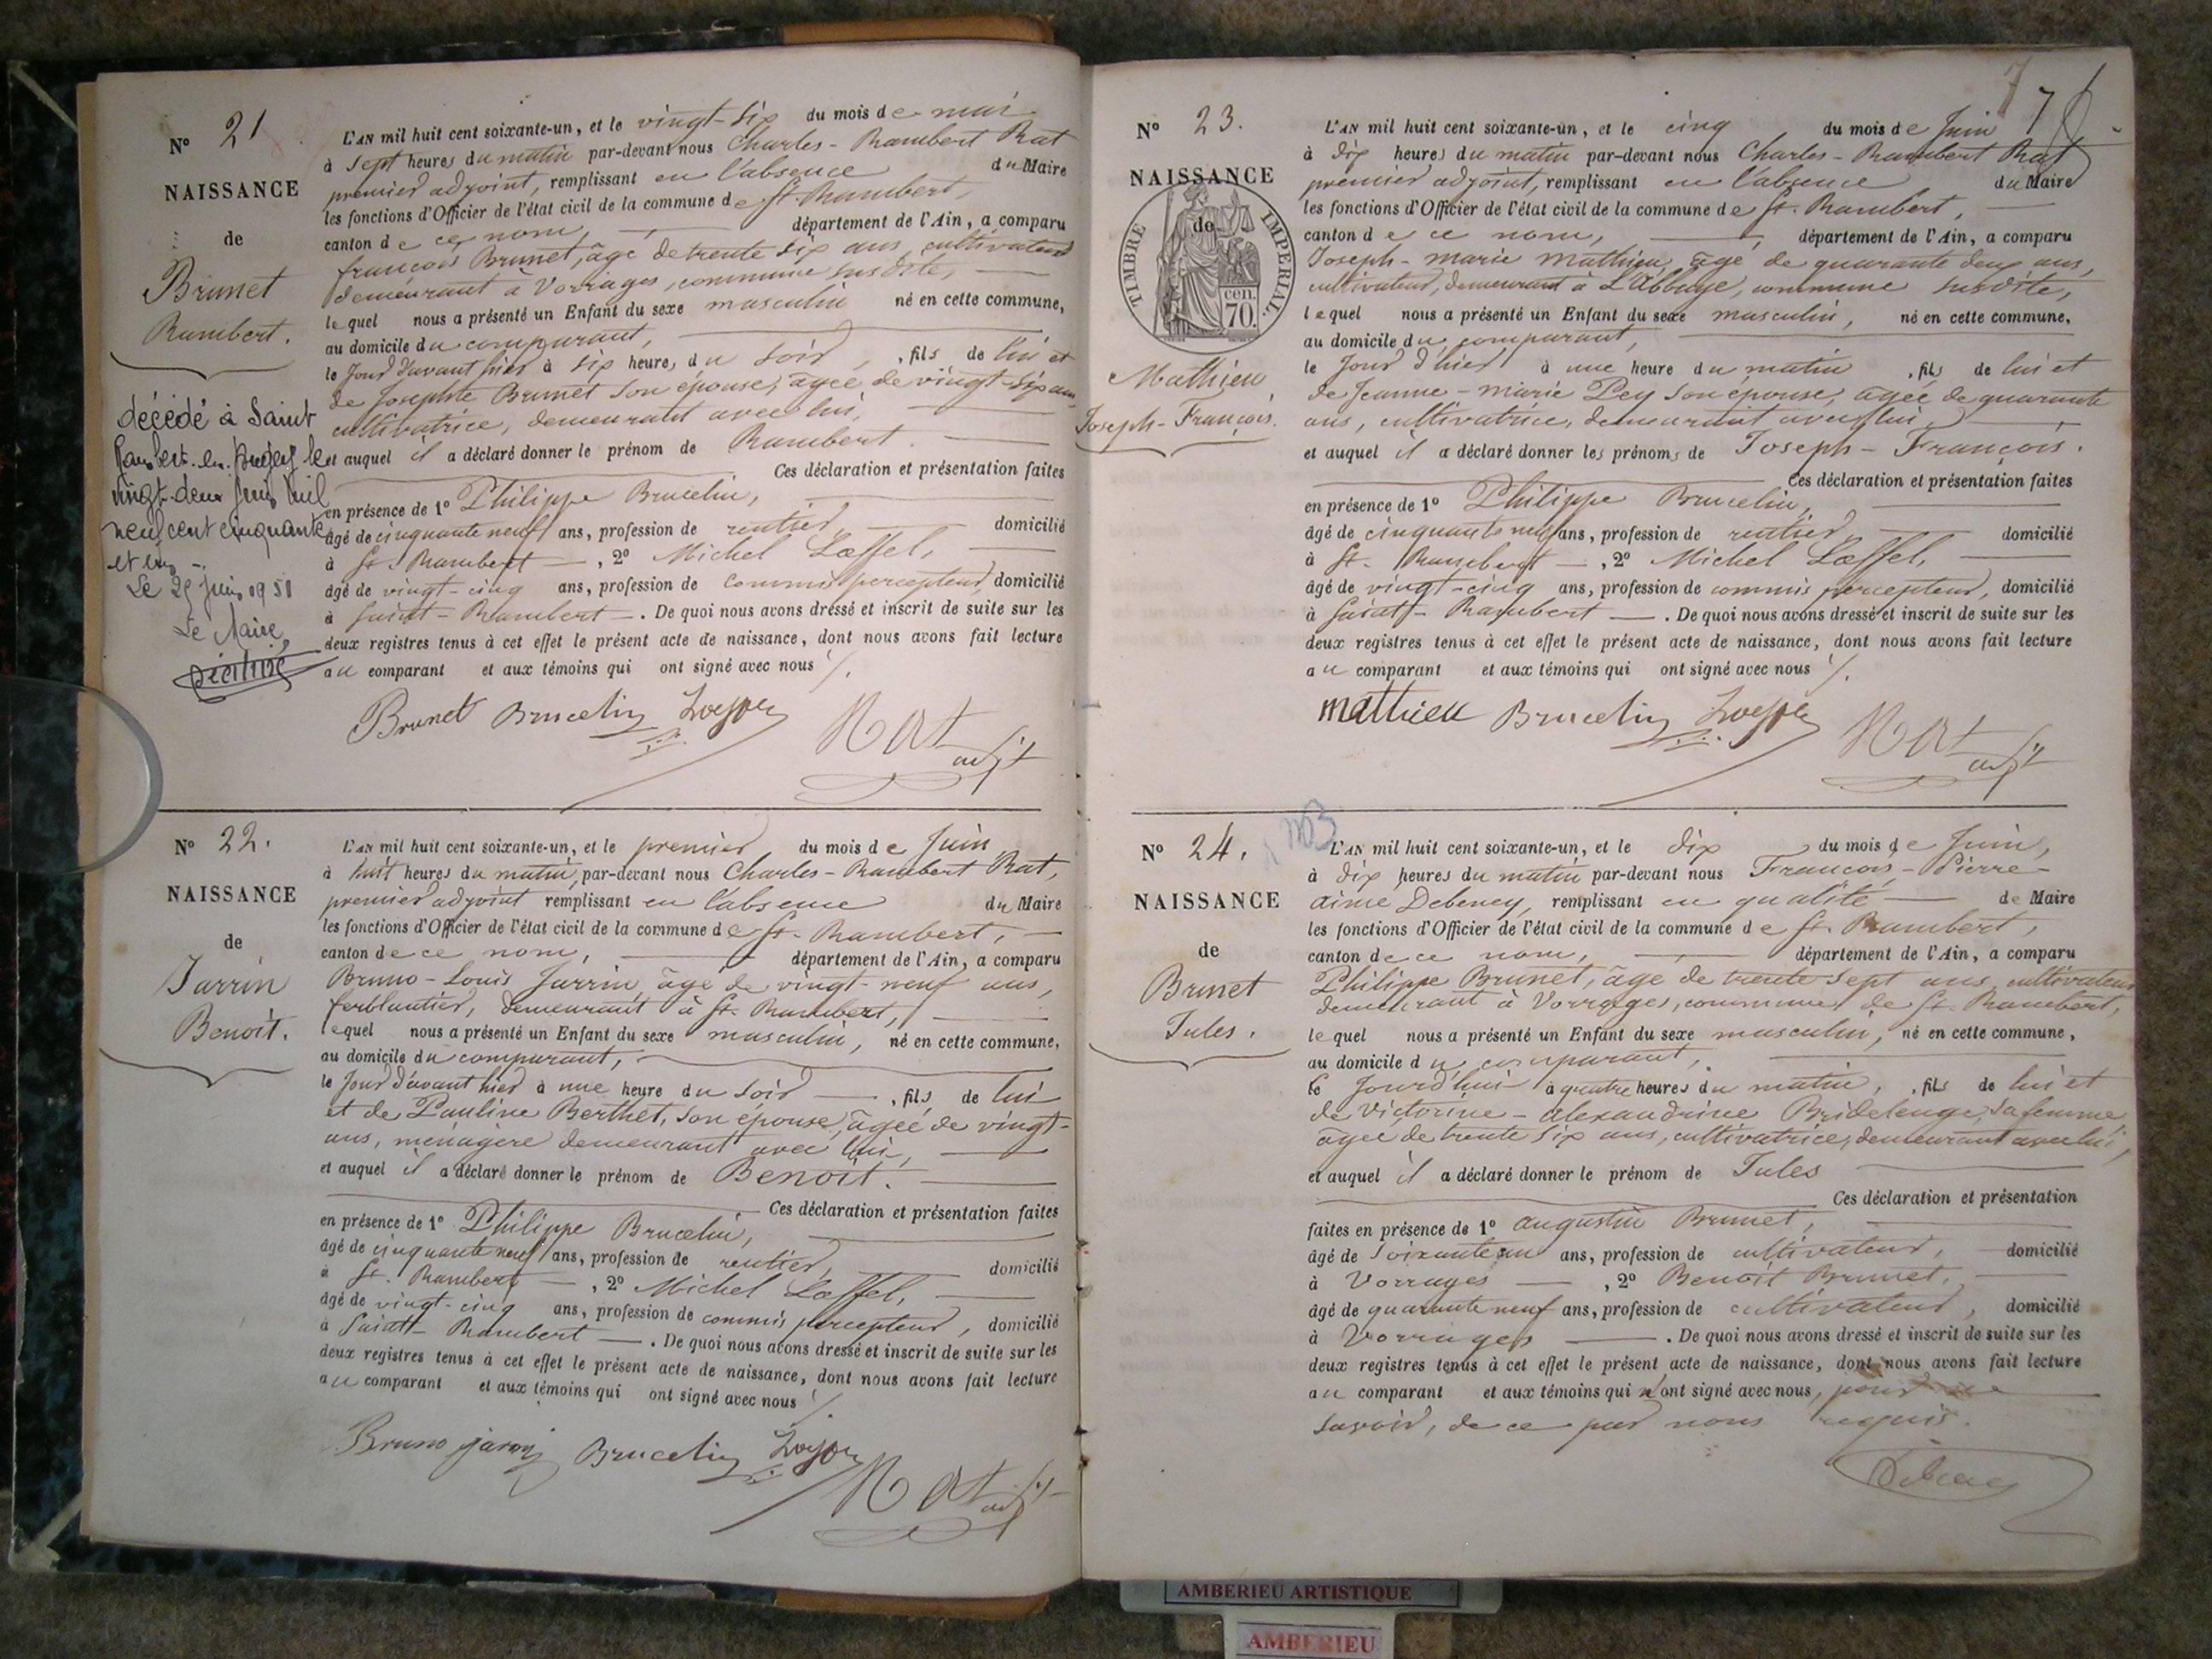 N° 21
NAISSANCE
de
Brunet
Rambert.
décédé à Saint
Rambert-en-Bugey le
vingt-deux juin mil
neuf cent cinquante
et un
Le 25 Juin 1951
Le Maire,
L'AN mil huit cent soixante-un, et le vingt-six du mois de mai
à sept heures du matin par-devant nous Charles-Rambert Rat
premier adjoint, remplissant en l'absence du Maire
les fonctions d'Officier de l'état civil de la commune de St. Rambert,
canton de ce nom, département de l'Ain, a comparu
françois Brunet, âgé de trente six ans, cultivateur
demeurant à Vorages, commune susdite,
lequel nous a présenté un Enfant du sexe masculin né en cette commune,
au domicile du comparant,
le Jour d'avant hier à six heures du soir, fils de lui et
de Josephte Brunet son épouse, âgée de vingt-six ans
cultivatrice, demeurant avec lui,
et auquel il a déclaré donner le prénom de Rambert.
Ces déclaration et présentation faites
en présence de 1° Philippe Brucelin,
âgé de cinquante neuf ans, profession de rentier, domicilié
à St. Rambert, 2° Michel Lœffel,
âgé de vingt-cinq ans, profession de commis percepteur, domicilié
à Saint-Rambert. De quoi nous avons dressé et inscrit de suite sur les
deux registres tenus à cet effet le présent acte de naissance, dont nous avons fait lecture
au comparant et aux témoins qui ont signé avec nous
Brunet Brucelin Loeffel Rat adjt
N° 22.
NAISSANCE
de
Jarrin
Benoit.
L'AN mil huit cent soixante-un, et le premier du mois de Juin
à huit heures du matin, par-devant nous Charles-Rambert Rat,
premier adjoint remplissant en l'absence du Maire
les fonctions d'Officier de l'état civil de la commune de St. Rambert,
canton de ce nom, département de l'Ain, a comparu
Bruno-Louis Jarrin, âgé de vingt-neuf ans,
ferblantier, demeurant à St. Rambert,
lequel nous a présenté un Enfant du sexe masculin, né en cette commune,
au domicile du comparant,
le Jour d'avant hier à une heure du soir, fils de lui
et de Pauline Berthet, son épouse, âgée de vingt-
ans, ménagère demeurant avec lui,
et auquel il a déclaré donner le prénom de Benoit.
Ces déclaration et présentation faites
en présence de 1° Philippe Brucelin,
âgé de cinquante neuf ans, profession de rentier, domicilié
à St. Rambert, 2° Michel Lœffel,
âgé de vingt-cinq ans, profession de commis percepteur, domicilié
à Saint-Rambert. De quoi nous avons dressé et inscrit de suite sur les
deux registres tenus à cet effet le présent acte de naissance, dont nous avons fait lecture
au comparant et aux témoins qui ont signé avec nous
Bruno Brucelin Loeffel Rat adjt
7
N° 23.
NAISSANCE
de
TIMBRE IMPERIAL.
cen.
70.
Mathieu
Joseph-François.
L'AN mil huit cent soixante-un, et le cinq du mois de Juin
à dix heures du matin par-devant nous Charles-Rambert Rat
premier adjoint, remplissant en l'absence du Maire
les fonctions d'Officier de l'état civil de la commune de St. Rambert,
canton de ce nom, département de l'Ain, a comparu
Joseph-marie Mathieu, âgé de quarante deux ans,
cultivateur, demeurant à L'Abbaye, commune susdite,
lequel nous a présenté un Enfant du sexe masculin, né en cette commune,
au domicile du comparant,
le Jour d'hier à une heure du matin, fils de lui et
de Jeanne-marie Pey son épouse, âgée de quarante
ans, cultivatrice, demeurant avec lui,
et auquel il a déclaré donner les prénoms de Joseph-François.
Ces déclaration et présentation faites
en présence de 1° Philippe Brucelin,
âgé de cinquante neuf ans, profession de rentier, domicilié
à St. Rambert, 2° Michel Lœffel,
âgé de vingt-cinq ans, profession de commis percepteur, domicilié
à Saint-Rambert. De quoi nous avons dressé et inscrit de suite sur les
deux registres tenus à cet effet le présent acte de naissance, dont nous avons fait lecture
au comparant et aux témoins qui ont signé avec nous
mathieu Brucelin Loeffel Rat adjt
N° 24.
NAISSANCE
de
Brunet
Jules.
L'AN mil huit cent soixante-un, et le dix du mois de Juin,
à dix heures du matin par-devant nous François-Pierre-
aimé Debeney, remplissant en qualité de Maire
les fonctions d'Officier de l'état civil de la commune de St. Rambert,
canton de ce nom, département de l'Ain, a comparu
Philippe Brunet, âgé de trente sept ans, cultivateur
demeurant à Vorages, commune de St. Rambert,
lequel nous a présenté un Enfant du sexe masculin, né en cette commune,
au domicile du comparant,
le Jourd'hui à quatre heures du matin, fils de lui et
de Victorine-alexandrine Bridelenge, sa femme,
âgée de trente six ans, cultivatrice, demeurant avec lui,
et auquel il a déclaré donner le prénom de Jules
Ces déclaration et présentation
faites en présence de 1° augustin Brunet,
âgé de soixante un ans, profession de cultivateur, domicilié
à Vorrages, 2° Benoit Brunet,
âgé de quarante neuf ans, profession de cultivateur, domicilié
à Vorrages. De quoi nous avons dressé et inscrit de suite sur les
deux registres tenus à cet effet le présent acte de naissance, dont nous avons fait lecture
au comparant et aux témoins qui n'ont signé avec nous, pour ne
savoir, de ce par nous requis.
Debeney
AMBERIEU ARTISTIQUE
AMBERIEU